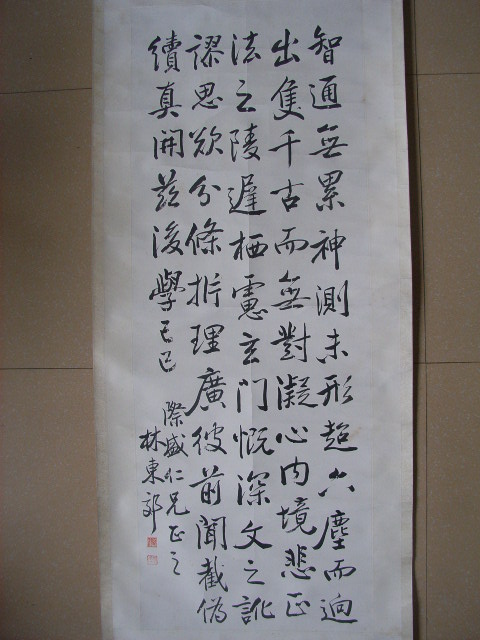 智通無累神測未形超六塵而迥
出隻千古而無對凝心内境悲正
法之陵遲栖慮玄門慨深文之訛
謬思欲分條析理廣彼前聞截偽
續真開茲後學 己巳
際盛仁兄正之
林東郊